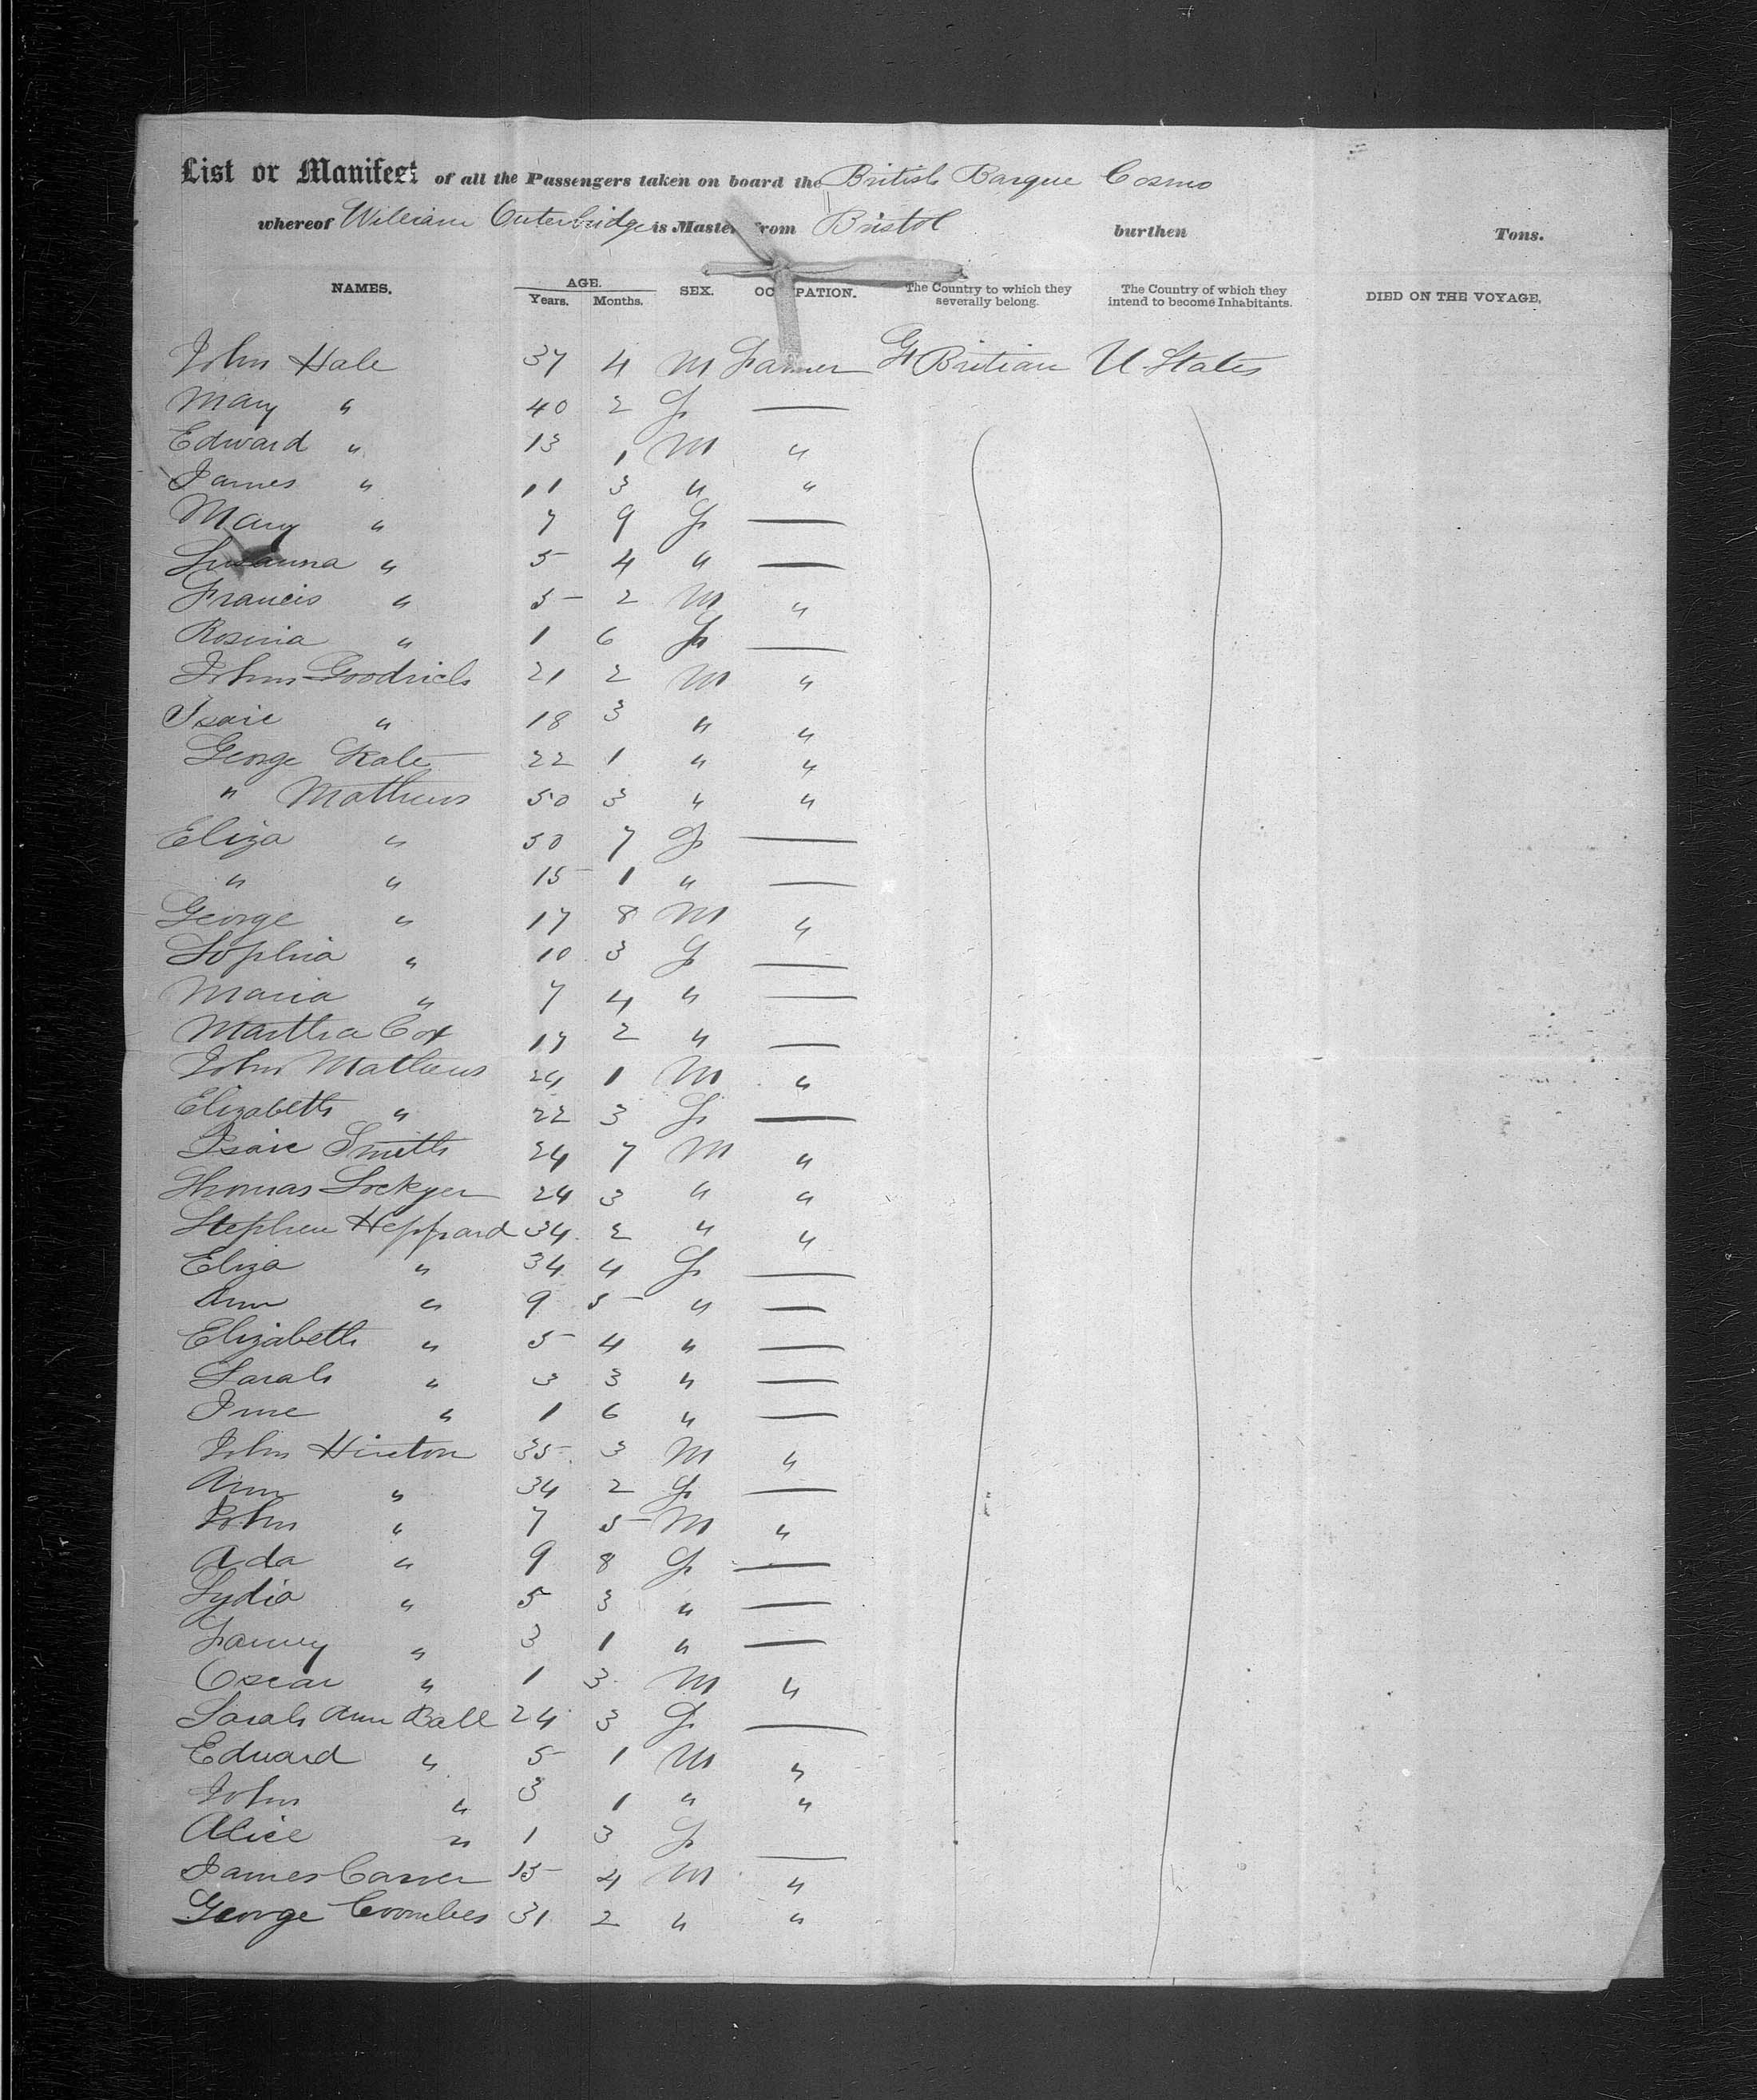 List or Manifest of all the Passengers taken on board the British Barque Cosmo
whereof William Outerbridge is Master from Bristol burthen Tons.
NAMES. AGE. Years. Months. SEX. OCCUPATION. The Country to which they severally belong. The Country of which they intend to become Inhabitants. DIED ON THE VOYAGE.
John Hale 37 4 M Farmer Gt Britian U States
Mary " 40 2 F —
Edward " 13 1 M "
James " 11 3 " "
Mary " 7 9 F —
Susanna " 5 4 " —
Francis " 5 2 M "
Rosina " 1 6 F —
John Goodrich 21 2 M "
Isaic " 18 3 " "
George 22 1 " "
" Mathews 50 3 " "
Eliza " 50 7 F —
" " 15 1 " —
George " 17 8 M "
Sophia " 10 3 F —
Maria " 7 4 " —
Martha Cox 17 2 " —
John Mathews 24 1 M "
Elizabeth " 22 3 F —
Isaic Smith 24 7 M "
Thomas Lockyer 24 3 " "
Stephen Heppard 34 2 " "
Eliza " 34 4 F —
Ann " 9 5 " —
Elizabeth " 5 4 " —
Sarah " 3 3 " —
" 1 6 " —
John Hinton 35 3 M "
Ann " 34 2 F —
John " 7 5 M "
Ada " 9 8 F —
Lydia " 5 3 " —
Fanny " 3 1 " —
Oscar " 1 3 M "
Sarah Ann Ball 24 3 F —
Edward " 5 1 M "
John " 3 1 " "
Alice " 1 3 F —
James 15 4 M "
George Coombes 31 2 " "